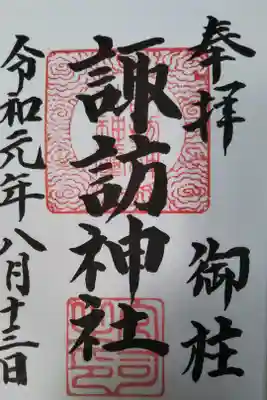 奉拝 御柱
諏訪神社
令和元年八月十三日